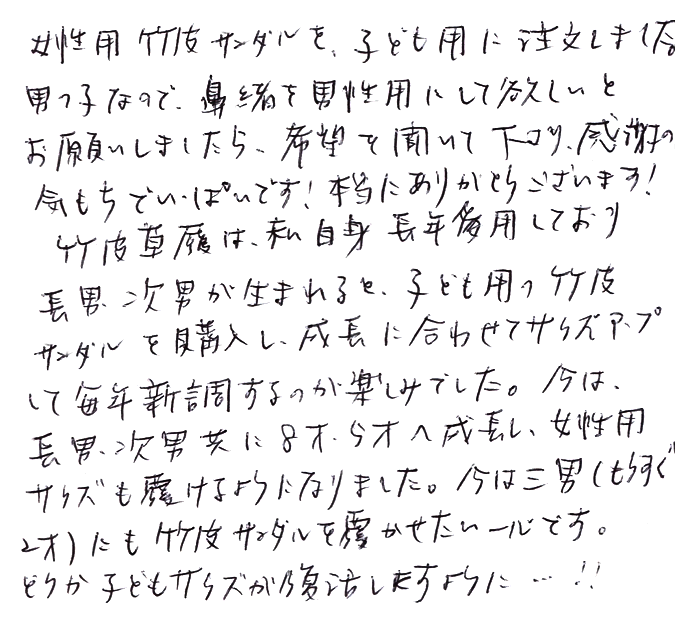 女性用 竹皮サンダルを、子ども用に注文しました
男の子なので、鼻緒を男性用にして欲しいと
お願いしましたら、希望を聞いて下さり、感謝の
気もちでいっぱいです！本当にありがとうございます！
竹皮草履は、私自身 長年愛用しており
長男、次男が生まれると、子ども用の竹皮
サンダルを購入し、成長に合わせてサイズアップ
して毎年新調するのが楽しみでした。今は、
長男、次男共に8才、5才へ成長し、女性用
サイズも履けるようになりました。今は三男（もうすぐ
2才）にも竹皮サンダルを履かせたい一心です。
どうか子どもサイズが復活しますように…!!